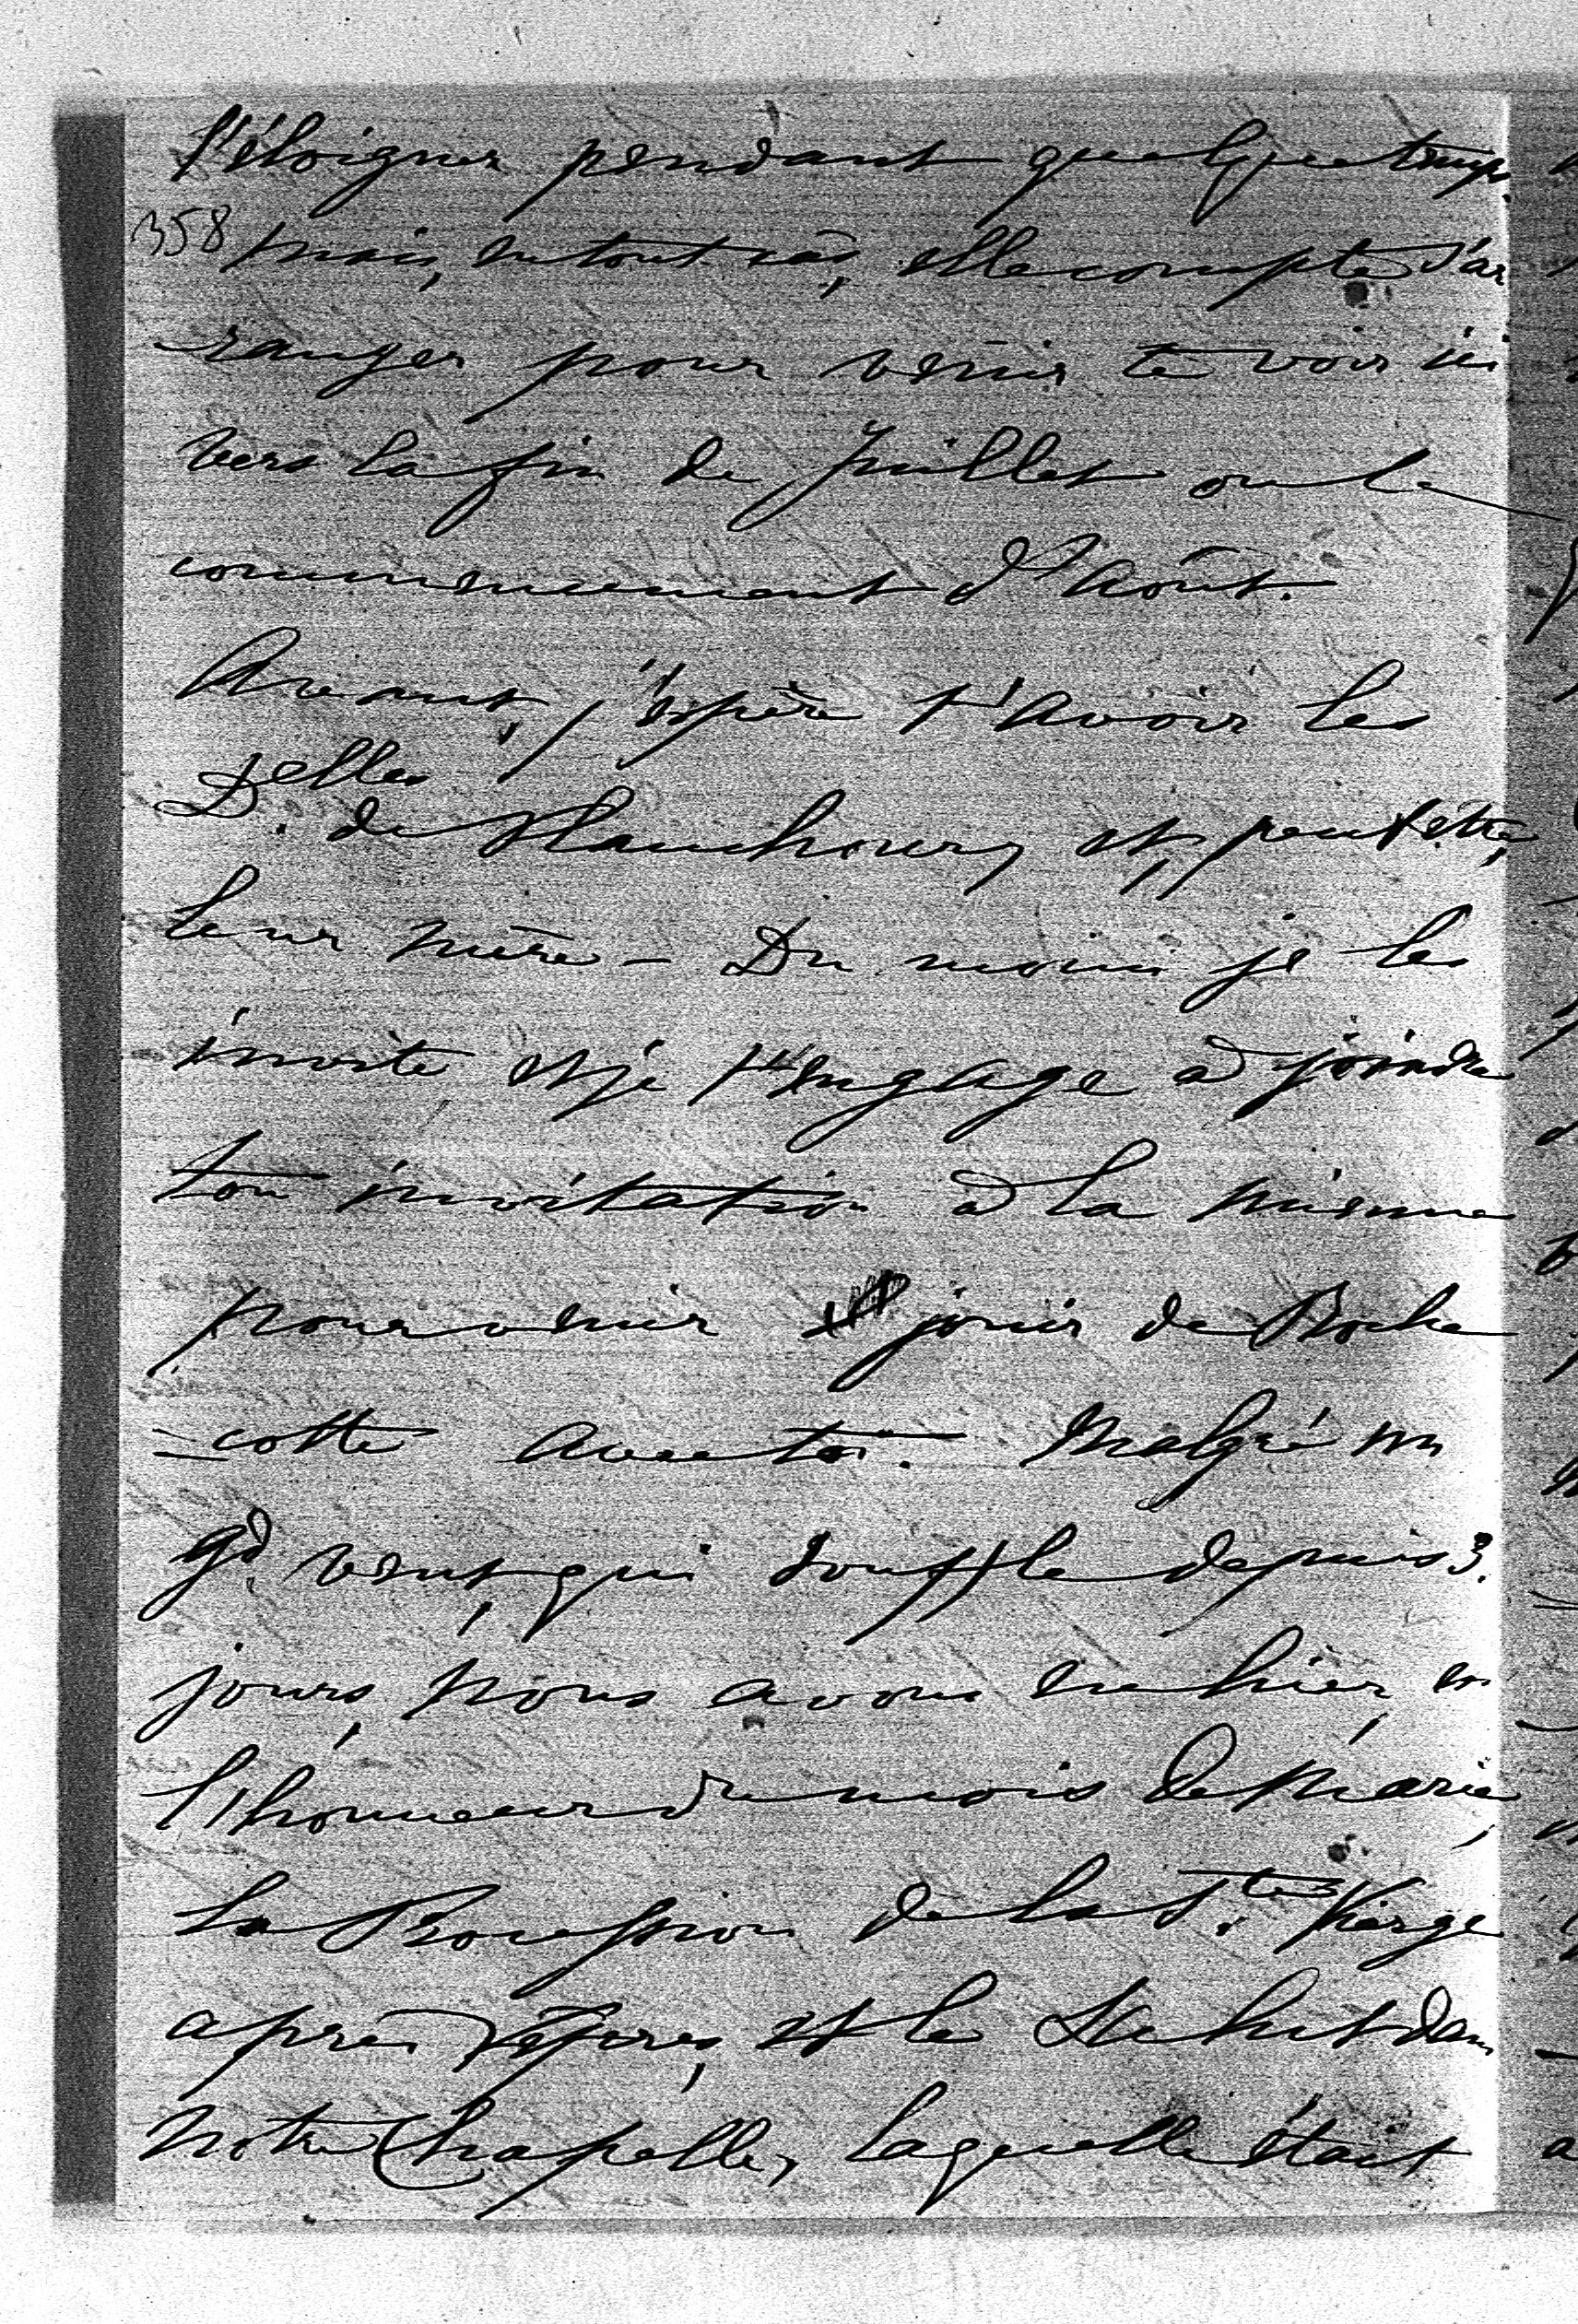 l'éloigner pendant quelque temps.
358 mais, en tout cas, elle compte s'ar
ranger pour venir te voir ici
vers la fin de Juillet ou le
commencement d'Août.
Avant, j'espère t'avoir les
Delles. de et, peut être,
leur mère - Du moins je les
invite et je t'engage à joindre
ton invitation à la mienne
pour venir jouir de Roche
=cotte avec toi. - Malgré un
gd. vent, qui souffle depuis 3.
jours, nous avons eu hier, en
l'honneur du mois de Marie,
la Procession de la Ste. Vierge
après Vêpres, et le Salut dans
notre Chapelle, laquelle était